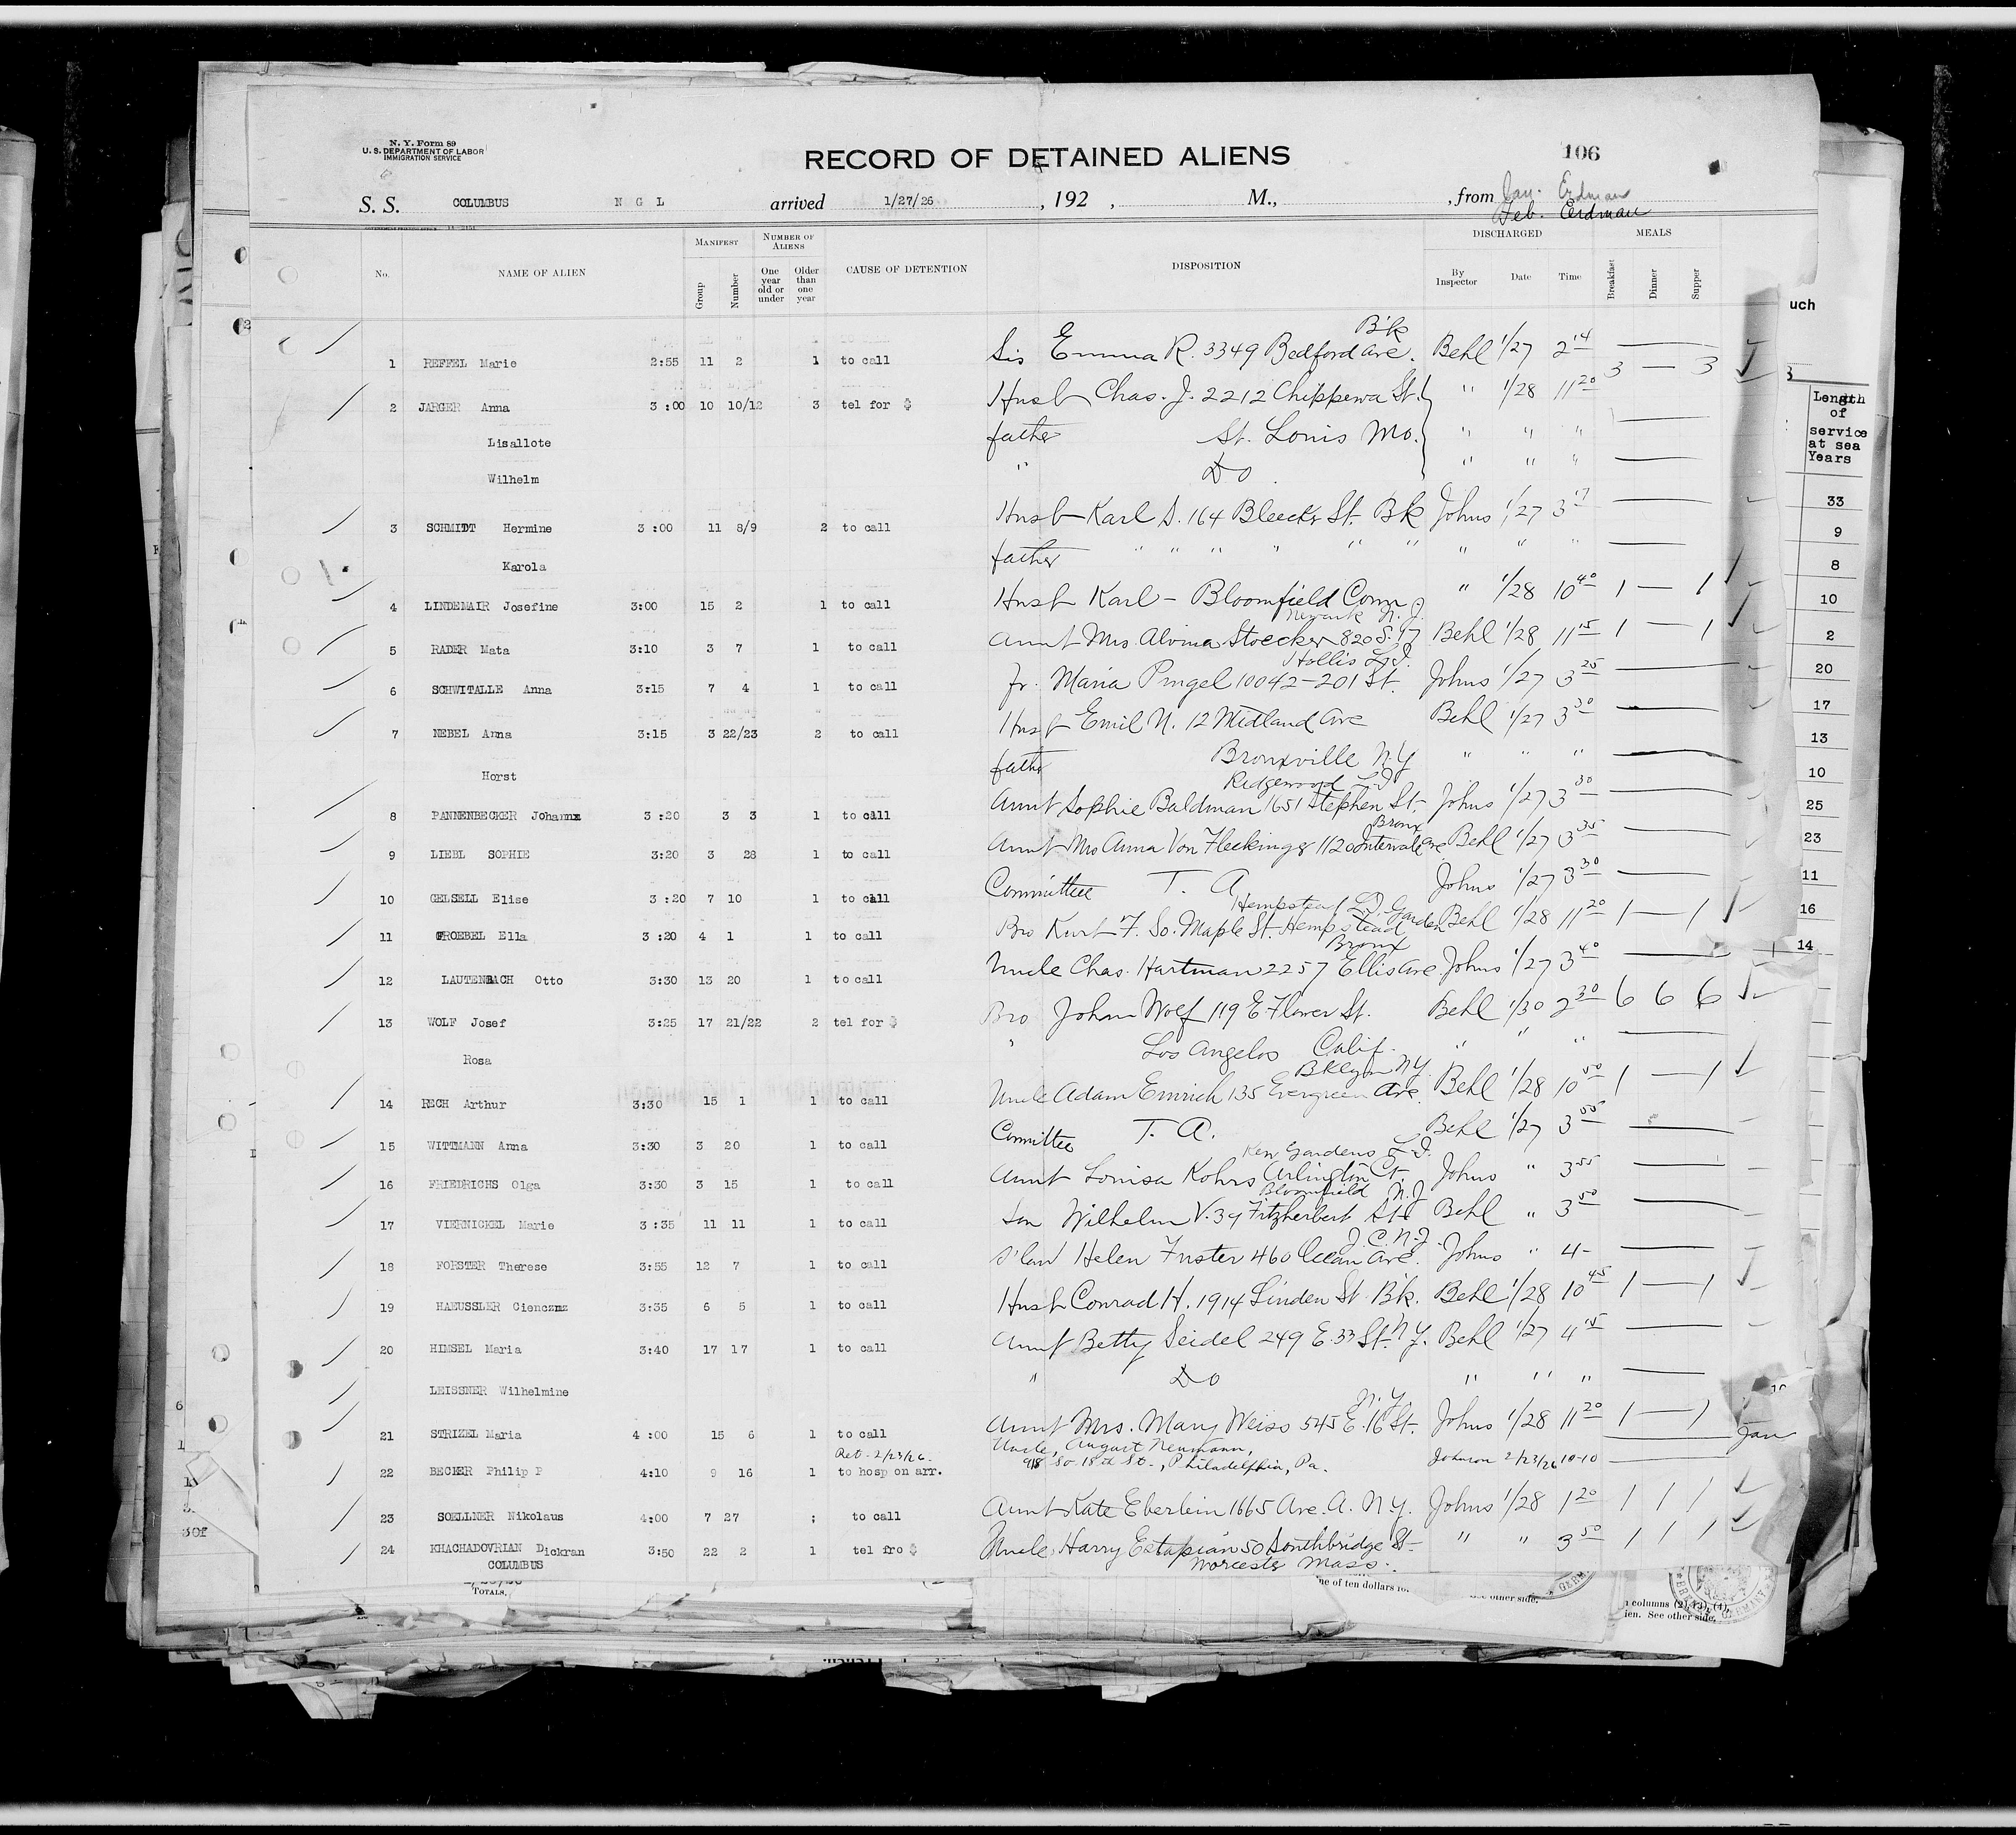 N. Y. Form 89
U. S. DEPARTMENT OF LABOR
IMMIGRATION SERVICE
RECORD OF DETAINED ALIENS
106
S. S. COLUMBUS N G L arrived 1/27/26 , 192 , M., , from Jan. Erdman
Feb. Erdman
No. NAME OF ALIEN MANIFEST Group Number NUMBER OF ALIENS One year old or under Older than one year CAUSE OF DETENTION DISPOSITION DISCHARGED By Inspector Date Time MEALS Breakfast Dinner Supper
B'k
1 REFFEL Marie 2:55 11 2 1 to call Sis Emma R. 3349 Bedford Ave. Behl 1/27 2 14
3 — 3
2 JARGER Anna 3:00 10 10/12 3 tel for $ Husb Chas. J. 2212 Chippewa St. " 1/28 11 20
Lisallote father St. Louis Mo. " " "
Wilhelm " Do " " "
3 SCHMIDT Hermine 3:00 11 8/9 2 to call Husb Karl S. 164 Bleecker St. Bk Johns 1/27 3 17
Karola father " " " " " " " " "
4 LINDEMAIR Josefine 3:00 15 2 1 to call Husb Karl - Bloomfield Conn " 1/28 10 40 1 — 1
Newark N.J.
5 RADER Mata 3:10 3 7 1 to call Aunt Mrs. Alvina Stoecker 820 S. 17 Behl 1/28 11 15 1 — 1
Hollis L.I.
6 SCHWITALLE Anna 3:15 7 4 1 to call fr. Maria Pingel 10042-201 St. Johns 1/27 3 25
7 NEBEL Anna 3:15 3 22/23 2 to call Husb Emil N. 12 Midland Ave Behl 1/27 3 30
Horst father Bronxville N.Y " " "
Ridgewood L.I
8 PANNENBECKER Johanna 3:20 3 3 1 to call Aunt Sophie Baldman 1651 Stephen St- Johns 1/27 3 30
Bronx
9 LIEBL SOPHIE 3:20 3 28 1 to call Aunt Mrs Anna Von Fleckinger 1120 Intervale Ave Behl 1/27 3 35
10 GELSELL Elise 3:20 7 10 1 to call Committee T. A Johns 1/27 3 30
Hempstead L.I. Garden
11 FROEBEL Ella 3:20 4 1 1 to call Bro Kurt F. So. Maple St. Hempstead Behl 1/28 11 20 1 — 1
Bronx
12 LAUTENBACH Otto 3:30 13 20 1 to call Uncle Chas. Hartman 2257 Ellis Ave. Johns 1/27 3 40
13 WOLF Josef 3:25 17 21/22 2 tel for $ Bro John Wolf 119 E. Flower St. Behl 1/30 2 30 6 6 6
Rosa " Los Angelos Calif. " " "
Bklyn N.Y.
14 RECH Arthur 3:30 15 1 1 to call Uncle Adam Emrich 135 Evergreen Ave. Behl 1/28 10 50 1 — 1
15 WITTMANN Anna 3:30 3 20 1 to call Committee T. A. Behl 1/27 3 55
Kew Gardens L.I.
16 FRIEDRICHS Olga 3:30 3 15 1 to call Aunt Louisa Kohrs Arlington Ct. Johns " 3 55
Bloomfield N.J
17 VIERNICKEL Marie 3:35 11 11 1 to call Son Wilhelm V. 39 Fitzherbert St Behl " 3 50
J. C. N.J.
18 FORSTER Therese 3:55 12 7 1 to call S'law Helen Fuster 460 Ocean Ave. Johns " 4-
19 HAEUSSLER 3:35 6 5 1 to call Husb Conrad H. 1914 Linden St. B'k. Behl 1/28 10 45 1 — 1
20 HIMSEL Maria 3:40 17 17 1 to call Aunt Betty Seidel 249 E. 33 St. N.Y. Behl 1/27 4 15
LEISSNER Wilhelmine " Do " " "
N.Y
21 STRIZEL Maria 4:00 15 6 1 to call Aunt Mrs. Mary Weiss 545 E. 16 St. Johns 1/28 11 20 1 — 1 Jan
Ret. 2/23/26. Uncle, August Neumann,
22 BECKER Philip P 4:10 9 16 1 to hosp on arr. 918 So. 18th St., Philadelphia, Pa. Johnson 2/23/26 10-10
23 SOELLNER Nikolaus 4:00 7 27 ; to call Aunt Kate Eberlein 1665 Ave. A. N.Y. Johns 1/28 1 20 1 1 1
24 KHACHADOVRIAN Dickran 3:50 22 2 1 tel fro $ Uncle Harry Estapian 50 Southbridge St- " " 3 50 1 1 1
COLUMBUS Worcester Mass.
TOTALS.
ne of ten dollars
See other side.
columns (2), (3), (4),
ien. See other side.
uch
Length
of
service
at sea
Years
33
9
8
10
2
20
17
13
10
25
23
11
16
14